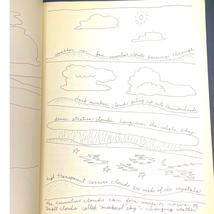 weather fair few cumulus clouds passing through
dark nimbus clouds piling up into thunderheads
dense stratus clouds hang over the whole sky
high transparent cirrus clouds are made of ice crystals
the cumulus clouds can form
small clouds called "mackerel sky" changing weather